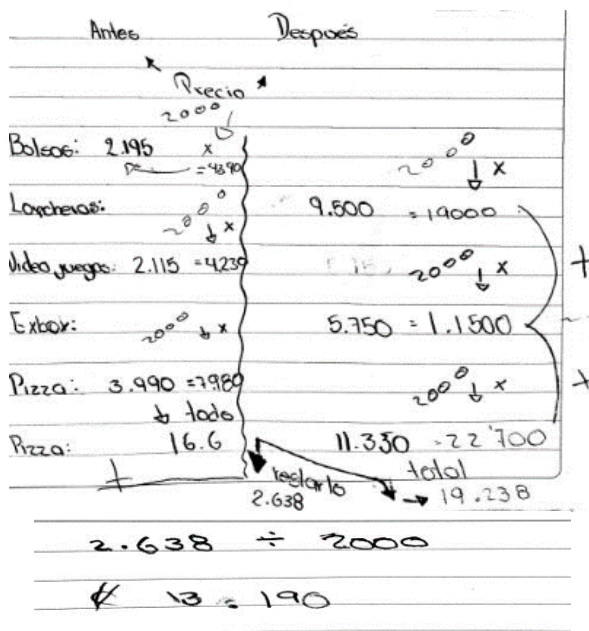 Antes Después
Precio
2000
Bolsos: 2.195 x 2000
= 4390 x
Loncheras: 2000 9.500 = 19000
x
Video juegos: 2.115 = 4.230 2000 x +
Exbox: 2000 x 5.750 = 1.1500
Pizza: 3.990 = 7.980 2000 x +
todo
Pizza: 16.6 11.350 = 22'700
+ restarlo total
2.638 → 19.238
2.638 ÷ 2000
13 = 190